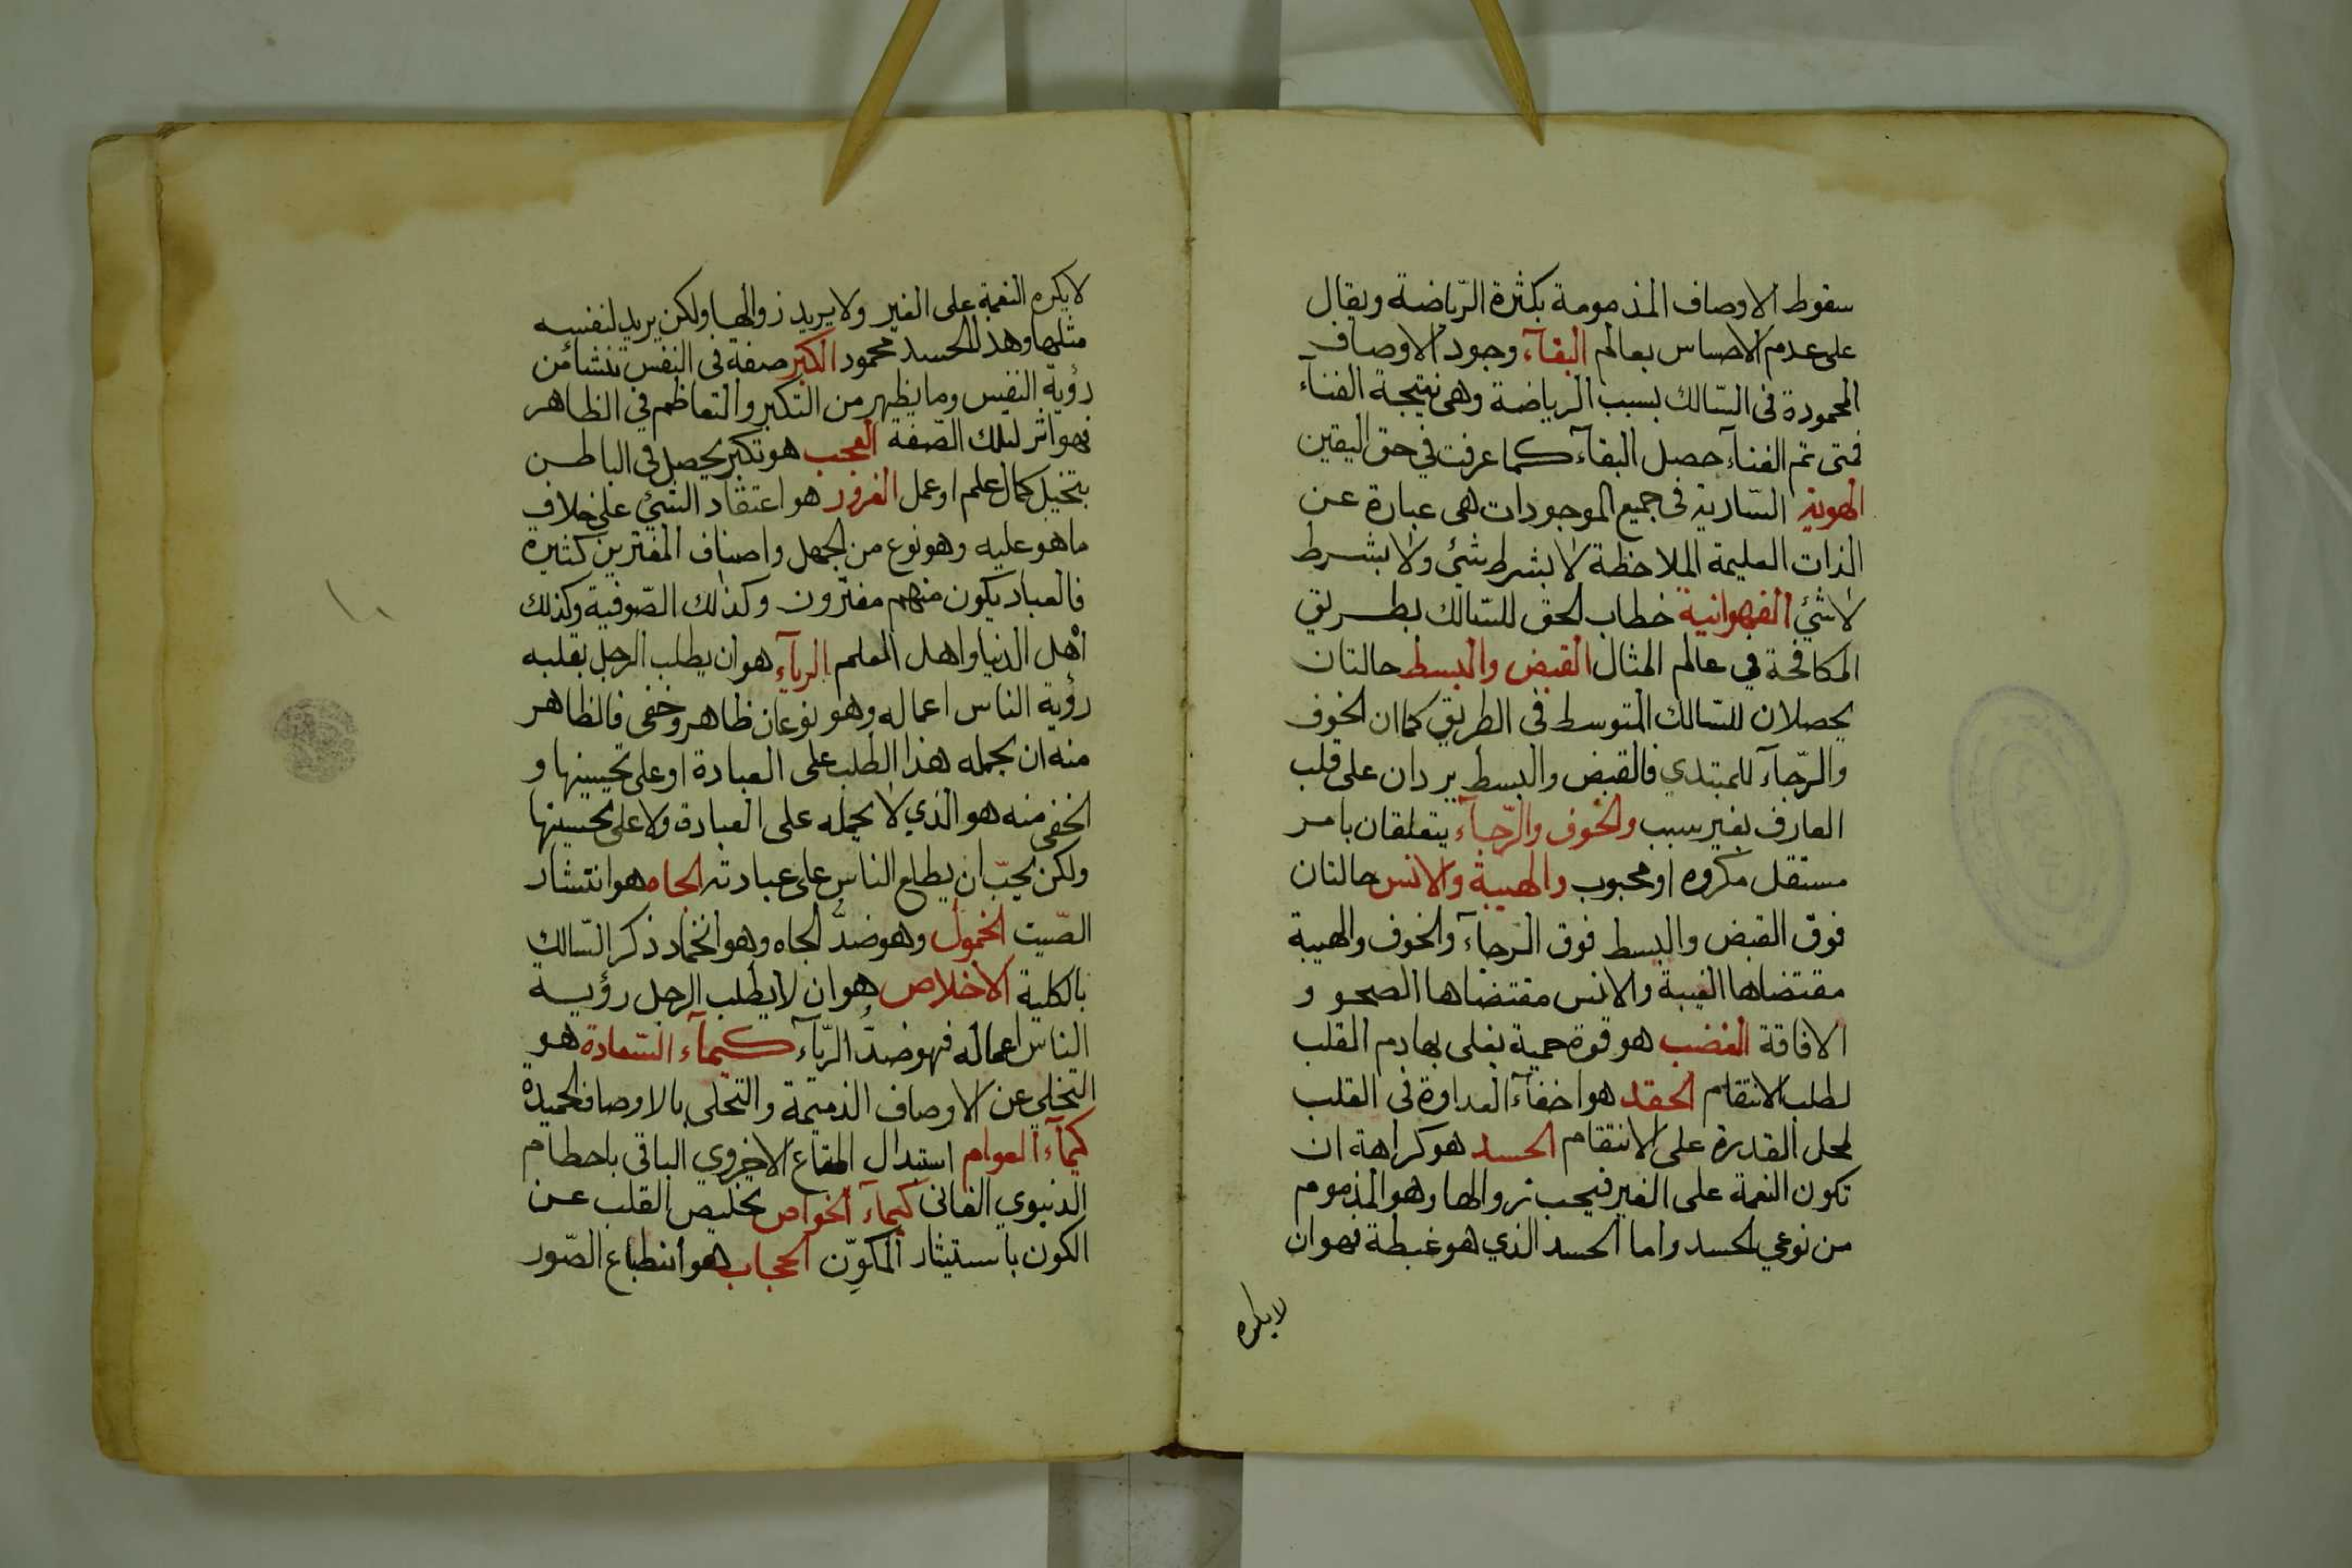 سقوط الاوصاف المذمومة بكثرة الرّياضة ويقال
على عدم الاحساس بعالم البقآء وجود الاوصاف
المحمودة فى السّالك بسبب الرياضة وهى نتيجة الفنآء
فمتى تم الفنآء حصل البقآء كما عرفت في حق اليقين
الهوية السّارية فى جميع الموجودات هى عبارة عن
الذات العليمة الملاحظة لا بشرط شئ ولا بشرط
لا شئ الفهوانية خطاب الحق للسّالك بطريق
المكافحة في عالم المثال القبض والبسط حالتان
يحصلان للسّالك المتوسط فى الطريق كما ان الخوف
والرّجآء للمبتدي فالقبض والبسط يردان على قلب
العارف بغير سبب والخوف والرّجآء يتعلقان بامر
مستقل مكروه او محبوب والهيبة والانس حالتان
فوق القبض والبسط فوق الرجآء والخوف والهيبة
مقتضاها الغيبة والانس مقتضاها الصحو و
الافاقة الغضب هو قوة حمية يغلى بها دم القلب
لطلب الانتقام الحقد هو اخفآء العداوة فى القلب
لمحل القدرة على الانتقام الحسد هو كراهة ان
تكون النعمة على الغير فيحب زوالها وهو المذموم
من نوعي الحسد واما الحسد الذي هو غبطة فهو ان
لا يكره
لا يكره النعمة على الغير ولا يريد زوالها ولكن يريد لنفسه
مثلها وهذا الحسد محمود الكبر صفة فى النفس تنشأ من
رؤية النفس وما يظهر من التكبر والتعاظم في الظاهر
فهو اثر لتلك الصّفة العجب هو تكبر يحصل فى الباطن
بتخيل كمال علم او عمل الغرور هو اعتقاد الشئ على خلاف
ما هو عليه وهو نوع من الجهل واصناف المغترين كثيرة
فالعباد يكون منهم مغترّون وكذلك الصّوفية وكذلك
أهل الدنيا واهل العلم الريآء هو ان يطلب الرجل بقلبه
رؤية الناس اعماله وهو نوعان ظاهر وخفى فالظاهر
منه ان يحمله هذا الطلب على العبادة او على تحسينها و
الخفى منه هو الذي لا يحمله على العبادة ولا على تحسينها
ولكن يحبّ ان يطلع الناس على عبادته الجاه هو انتشار
الصّيت الخمول وهو ضدّ الجاه وهو انخماد ذكر السّالك
بالكلية الاخلاص هو ان لا يطلب الرجل رؤية
الناس اعماله فهو ضدّ الرّيآء كيمآء السّعادة هو
التخلي عن الاوصاف الذميمة والتحلى بالاوصاف الحميدة
كيمآء العوام استبدال المتاع الاخروي الباقى باحطام
الدنيوي الفانى كيمآء الخواص تخليص القلب عن
الكون باستيثار المكوّن الحجاب هو انطباع الصّور